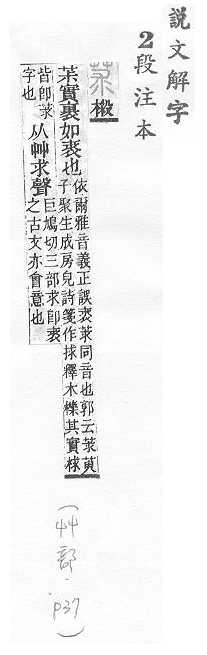 說文解字
2段注本
莍
樧
茮實裏如裘也
依爾雅音義正誤裘莍同音也郭云莍萸
子聚生成房皃詩箋作捄釋木櫟其實梂
皆卽莍
字也
从艸求聲
巨鳩切三部求卽裘
之古文亦會意也
(艸部.p37)